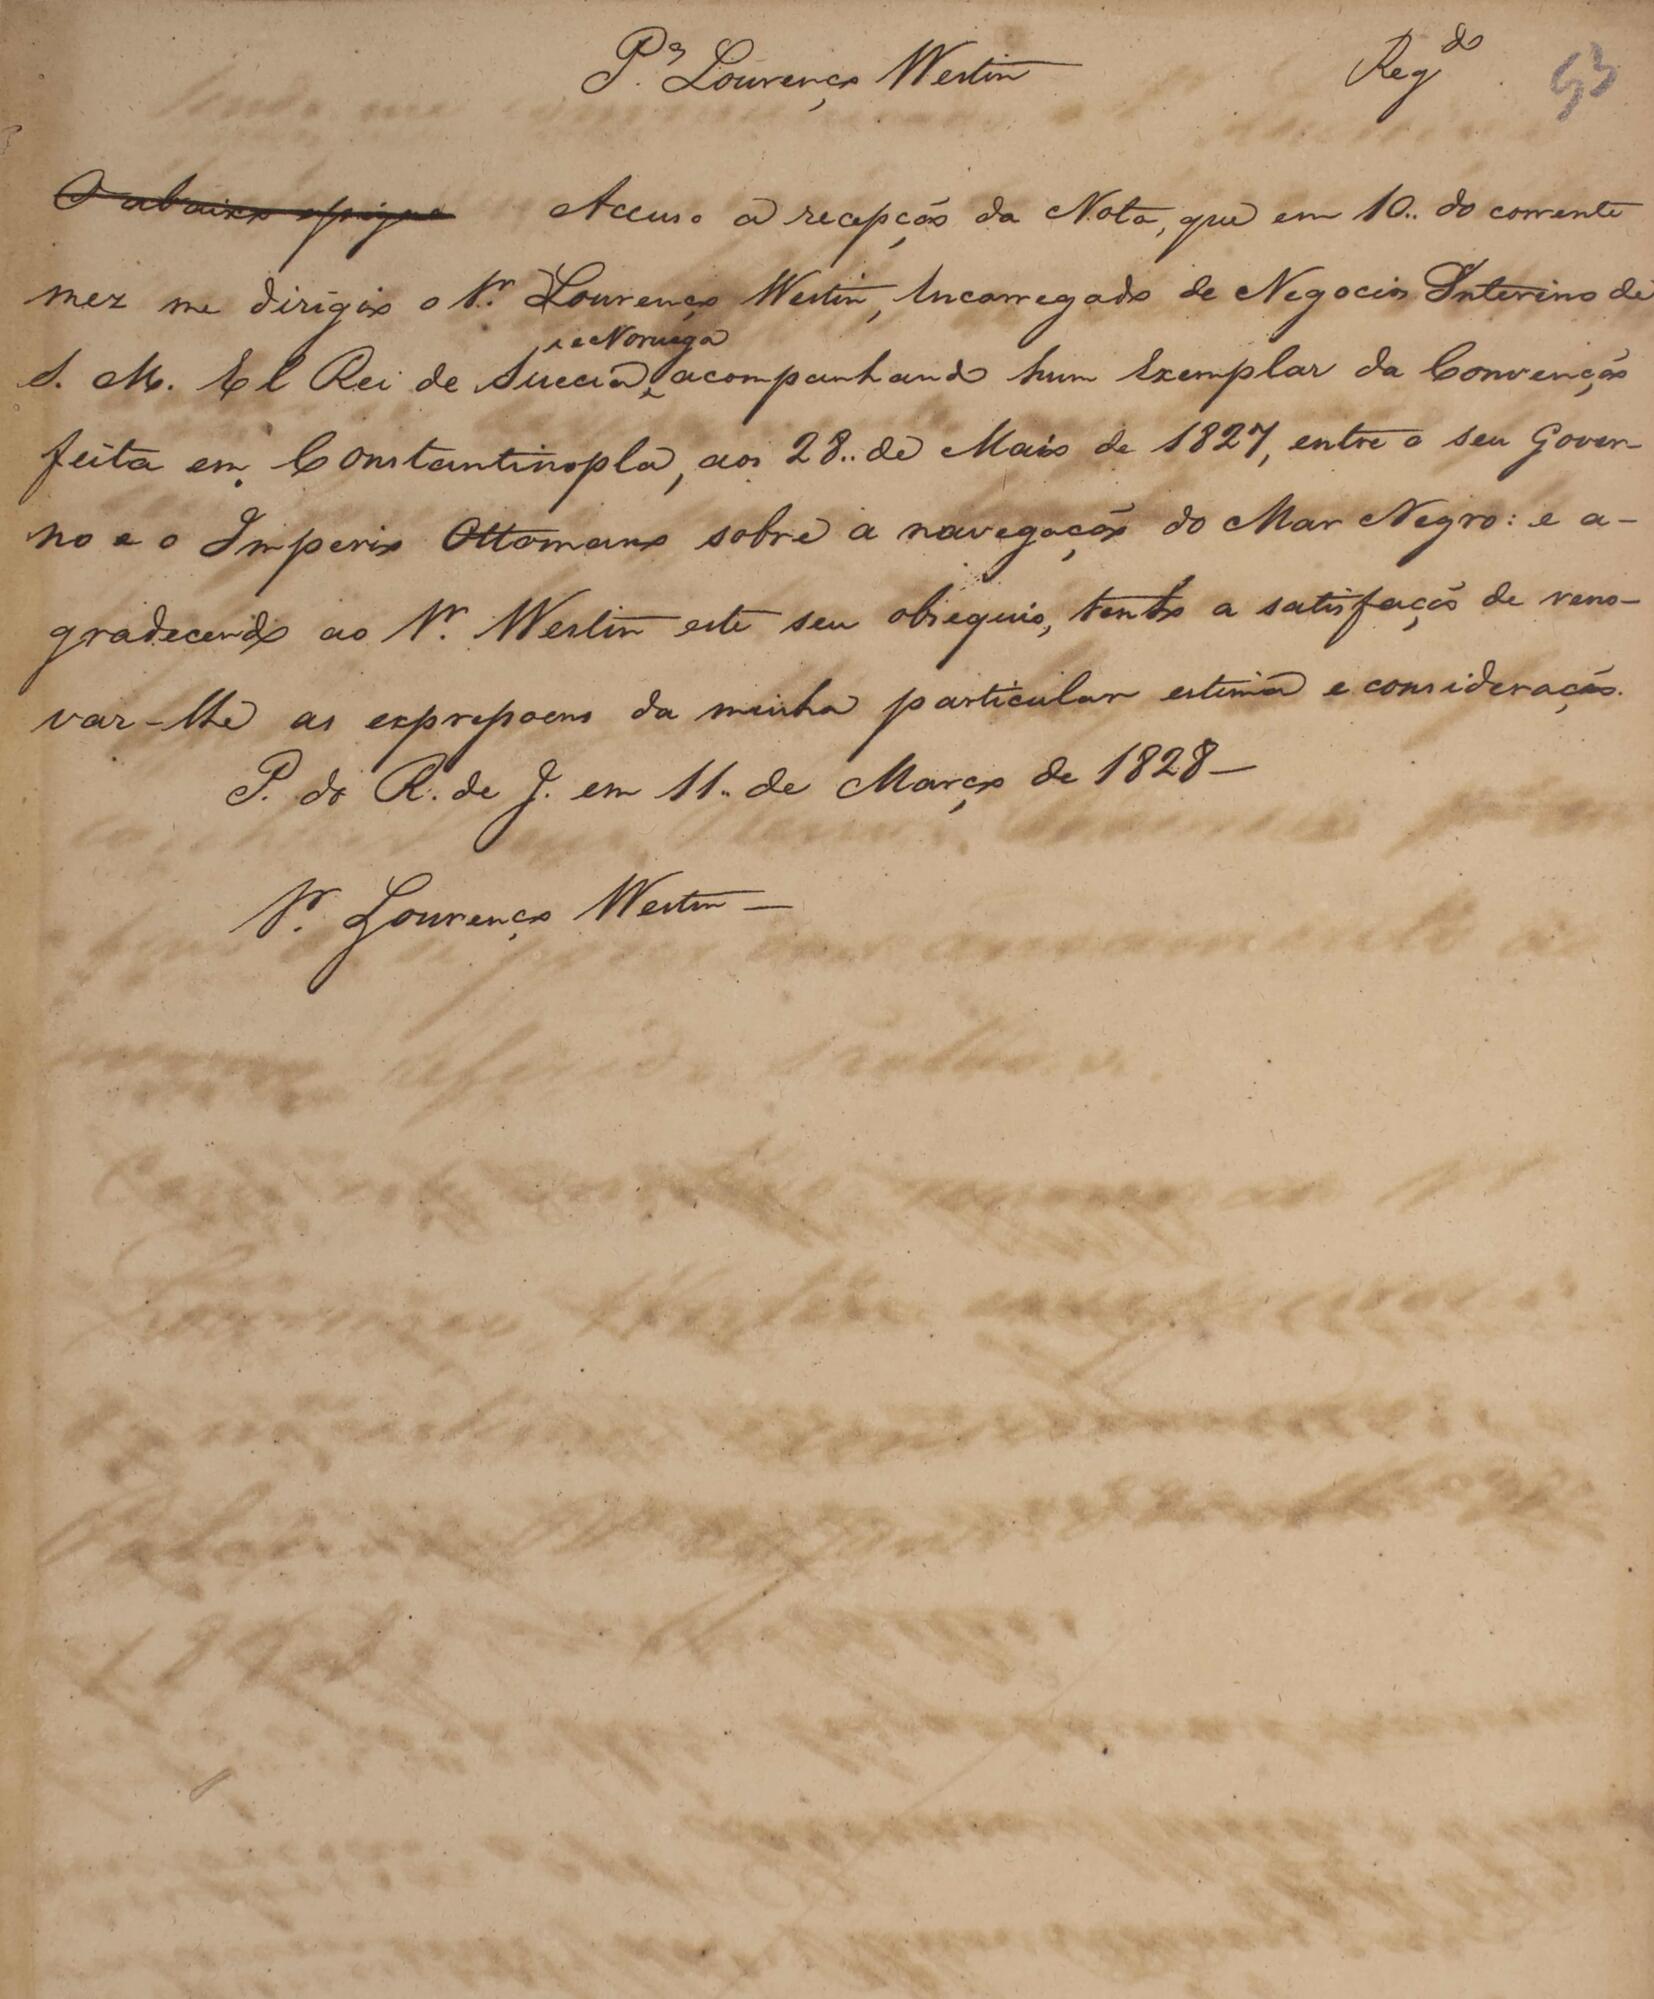 P.ª Lourenço Westin
Reg.do
93
O abaixo assigna Accuso a recepção da Nota, que em 10.. do corrente
mez me dirigio o Sr. Lourenço Westin, Encarregado de Negocios Interino de
e Noruega
S. M. El Rei de Suecia, acompanhando hum Exemplar da Convenção
feita em Constantinopla, aos 28.. de Maio de 1827, entre o seu Gover-
no e o Imperio Ottomano sobre a navegação do Mar Negro: e a-
gradecendo ao Sr. Westin este seu obsequio, tenho a satisfação de reno-
var-lhe as expressoens da minha particular estima e consideração.
P. do R. de J. em 11.. de Março de 1828 —
Sr. Lourenço Westin —